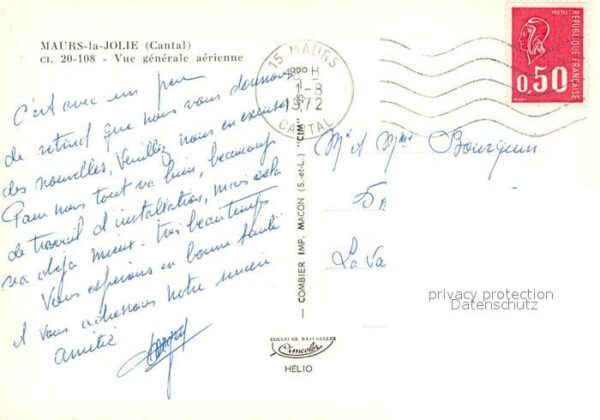 MAURS-la-JOLIE (Cantal)
CI. 20-108 - Vue générale aérienne
C'est avec un peu
de retard que nous vous donnons
des nouvelles, Veuillez nous en excuser
Pour nous tout va bien, beaucoup
de travail d'installation, mais cela
va déjà mieux. Très beau temps
Vous espérons en bonne santé
et vous adressons notre sincère
amitié
COMBIER IMP. MACON (S.-et-L.) "CIM"
COULEURS NATURELLES
Cimcolor
HÉLIO
15 MAURS
1-8
1972
CANTAL
POSTES
REPUBLIQUE FRANÇAISE
0,50
Mr et Mme Bourquin
La Va
privacy protection
Datenschutz